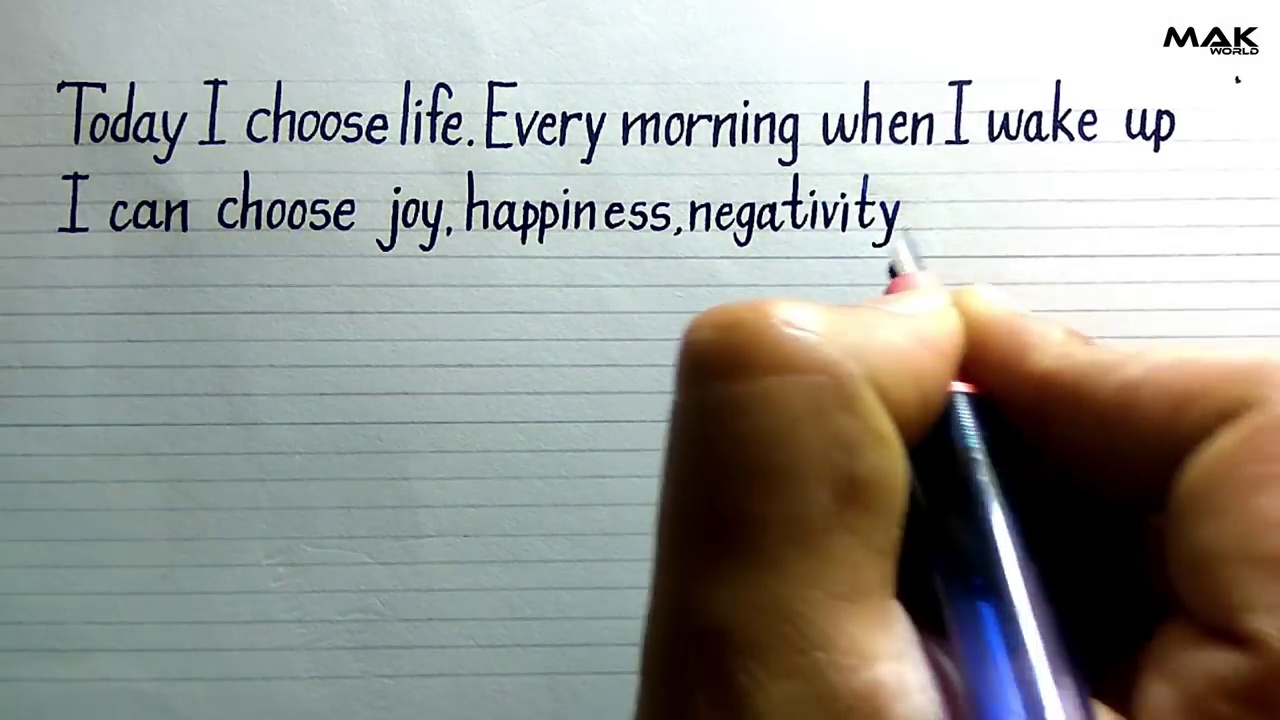 MAK
WORLD
Today I choose life. Every morning when I wake up
I can choose joy, happiness, negativity